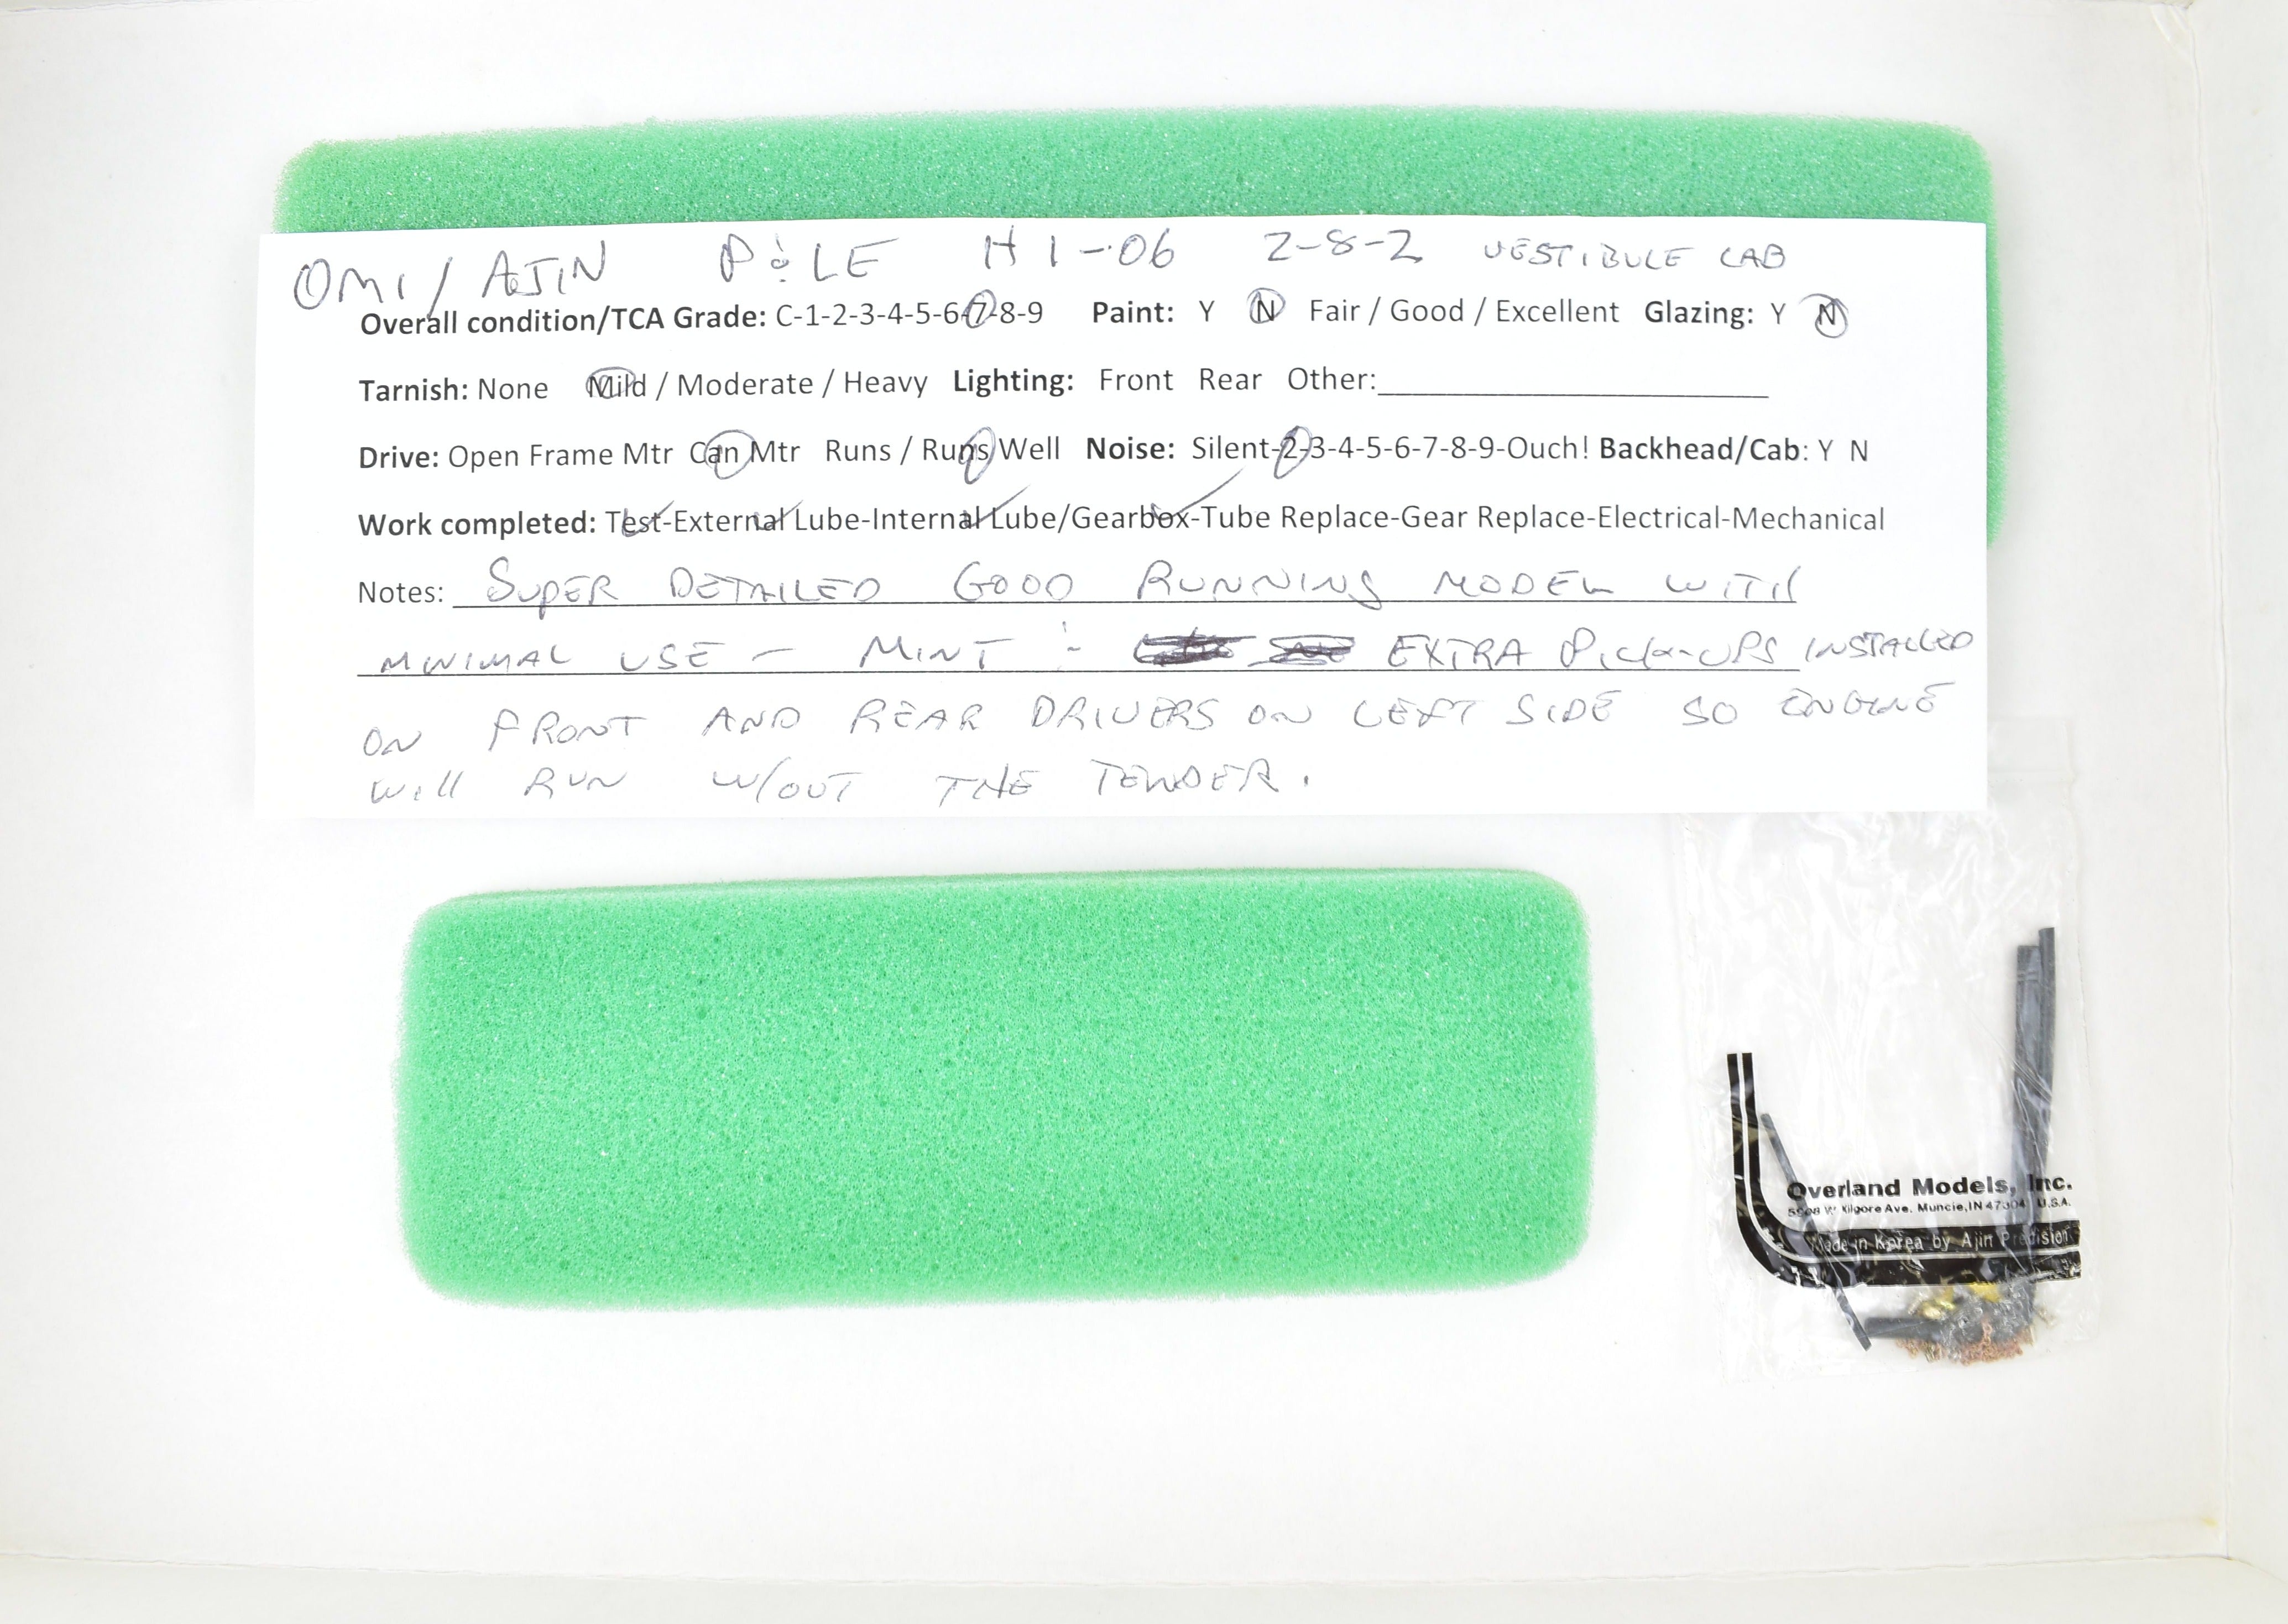 OMI / AJIN P&LE H1-06 2-8-2 VESTIBULE CAB
Overall condition/TCA Grade: C-1-2-3-4-5-6-7-8-9 Paint: Y N Fair / Good / Excellent Glazing: Y N
Tarnish: None Mild / Moderate / Heavy Lighting: Front Rear Other:
Drive: Open Frame Mtr Can Mtr Runs / Runs Well Noise: Silent-2-3-4-5-6-7-8-9-Ouch! Backhead/Cab: Y N
Work completed: Test-External Lube-Internal Lube/Gearbox-Tube Replace-Gear Replace-Electrical-Mechanical
Notes: SUPER DETAILED GOOD RUNNING MODEL WITH
MINIMAL USE - MINT - EXTRA PICK-UPS INSTALLED
ON FRONT AND REAR DRIVERS ON LEFT SIDE SO ENGINE
Will RUN W/OUT THE TENDER.
Overland Models, Inc.
5908 W Kilgore Ave. Muncie, IN 47304 U.S.A.
Made in Korea by Ajin Precision